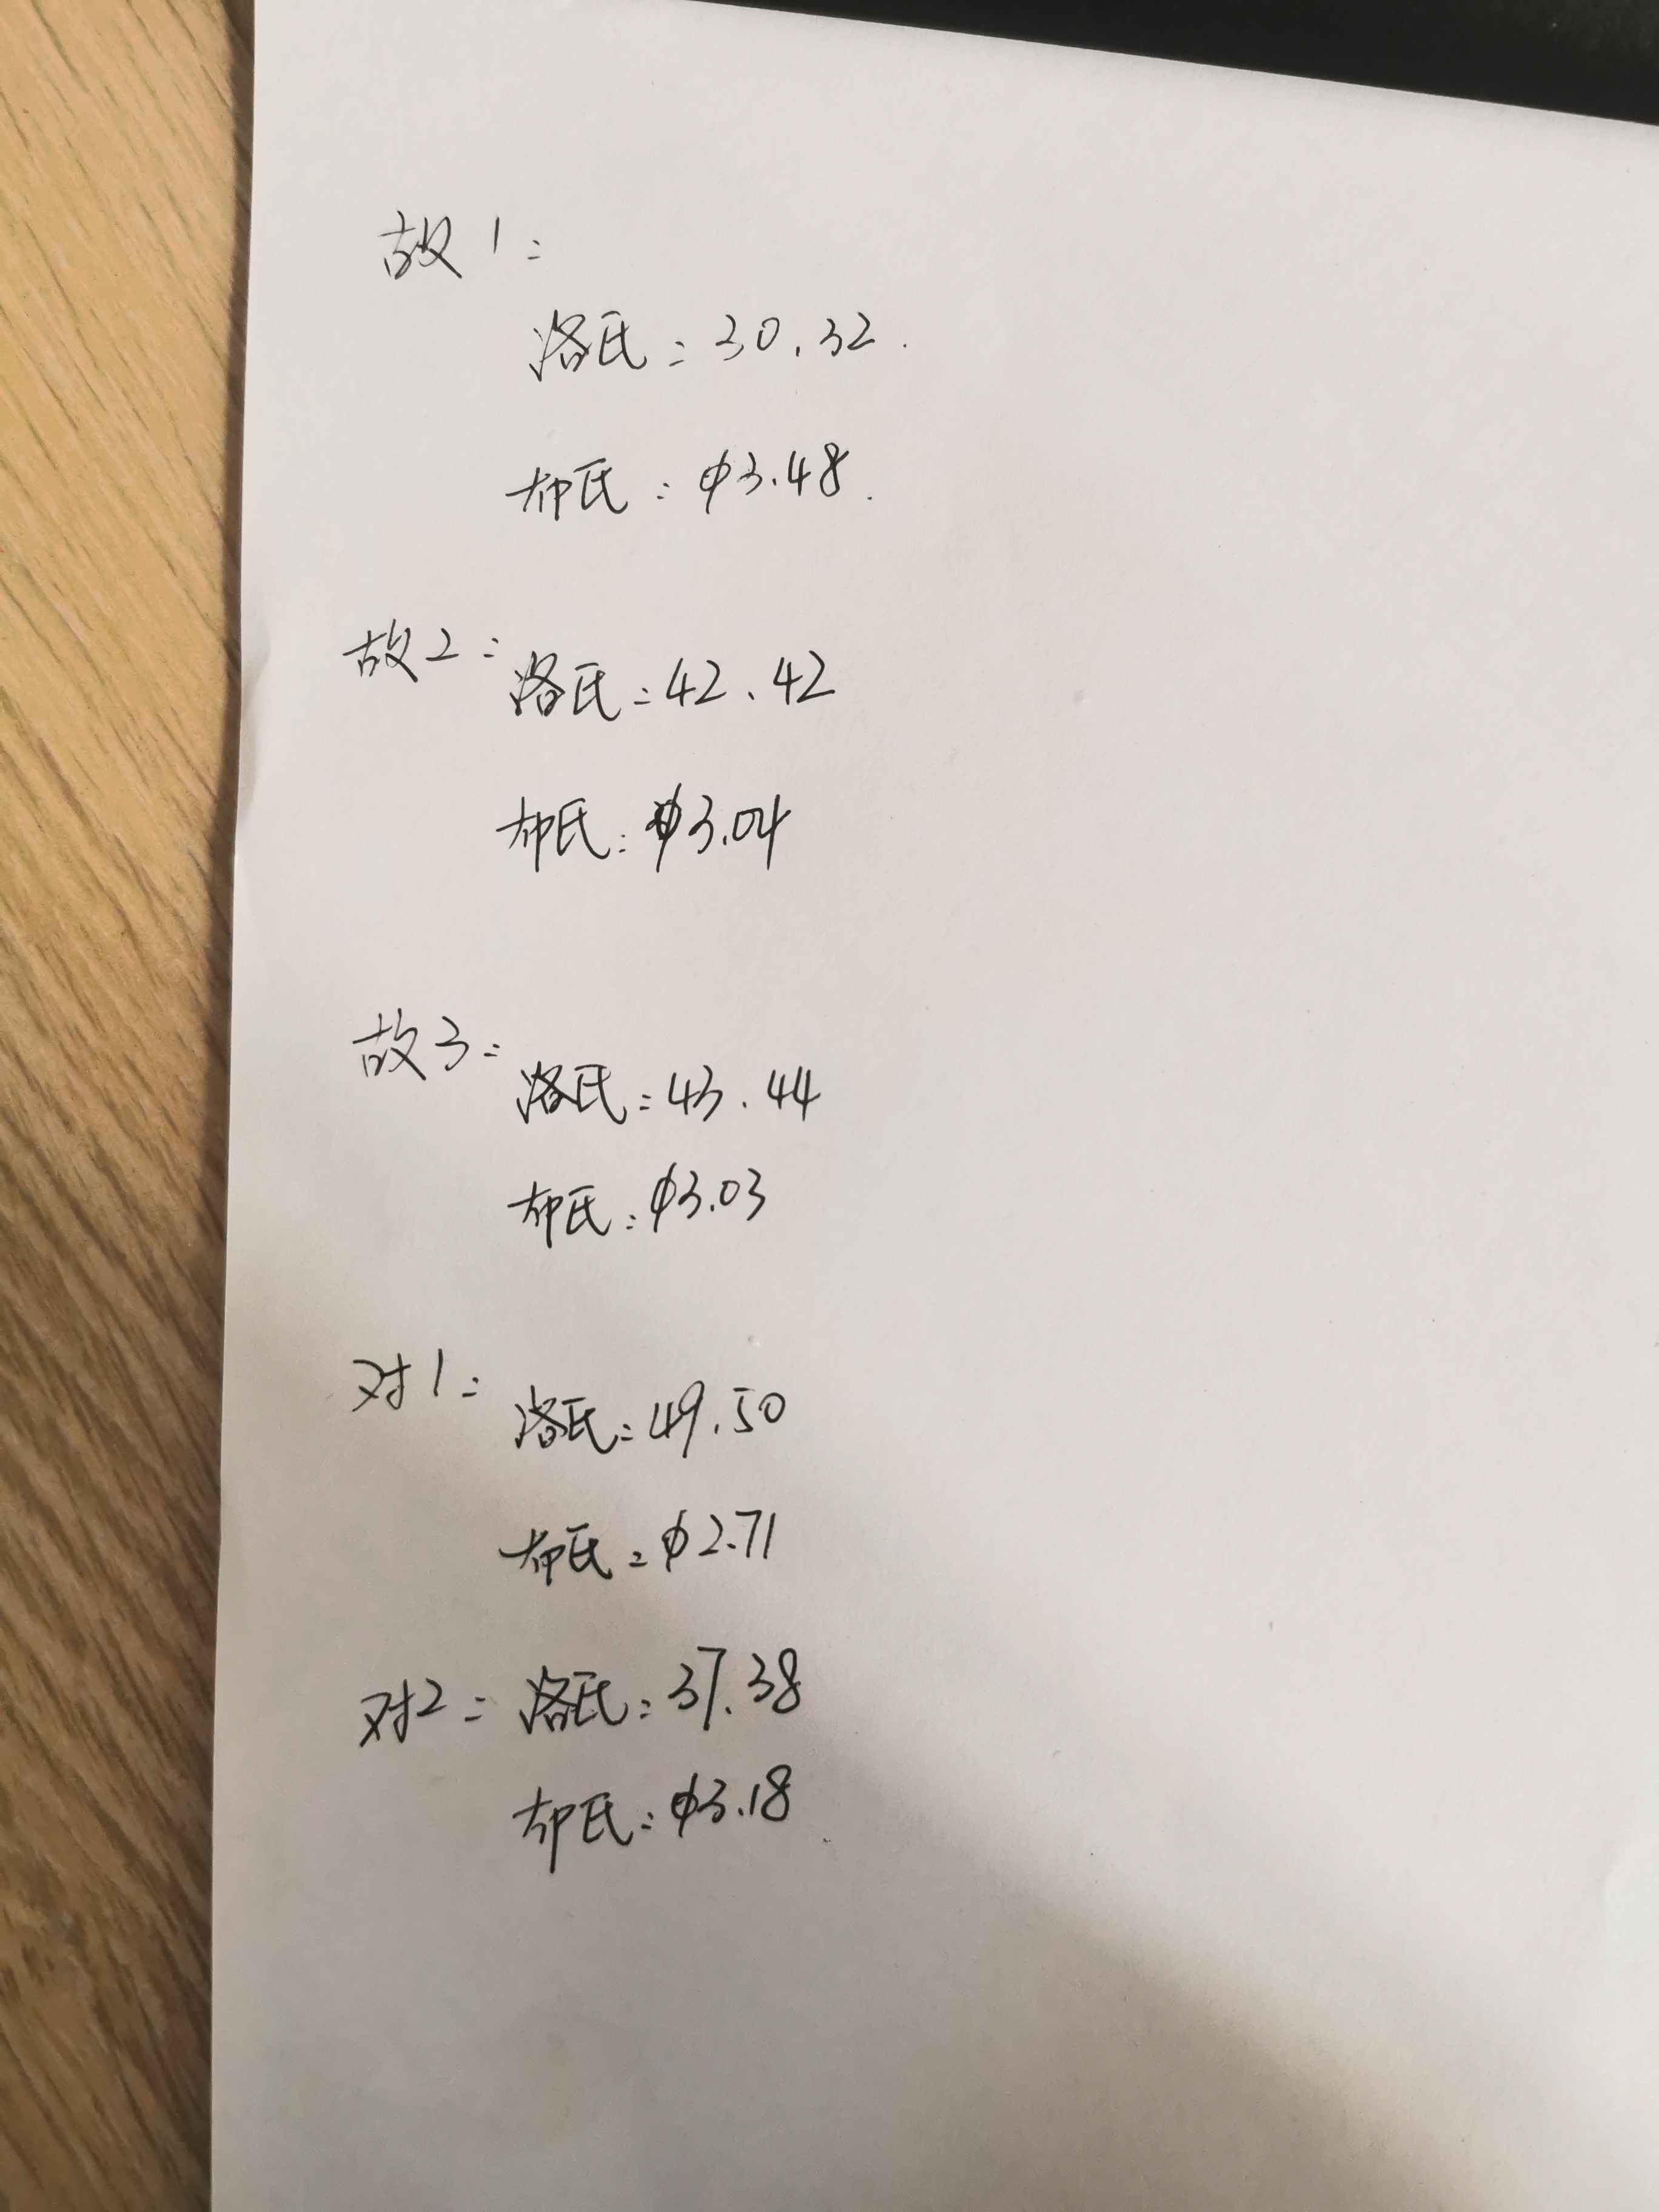 故1:
洛氏:30.32.
布氏:φ3.48.
故2:
洛氏:42、42
布氏:φ3.04
故3:
洛氏:43.44
布氏:φ3.03
对1:
洛氏:49.50
布氏:φ2.71
对2: 洛氏:37.38
布氏:φ3.18